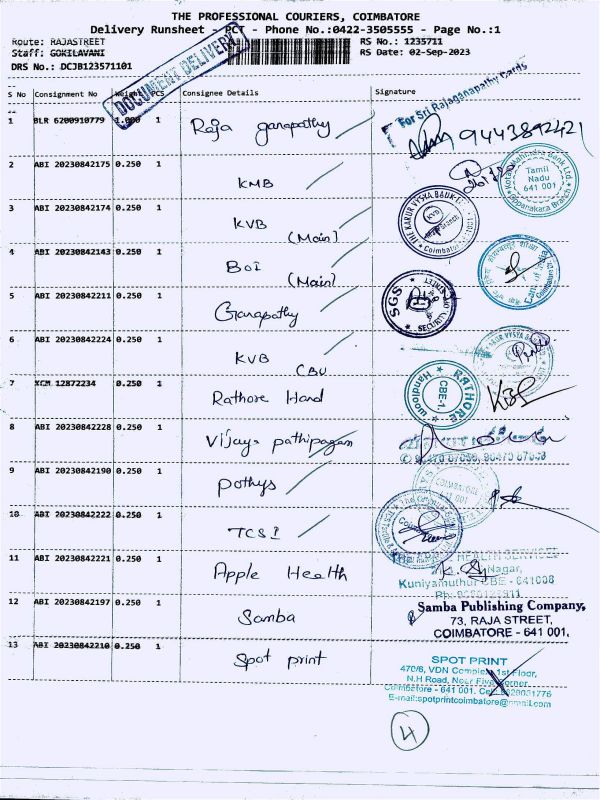 THE PROFESSIONAL COURIERS, COIMBATORE
Delivery Runsheet - PCT - Phone No.:0422-3505555 - Page No.:1
Route: RAJASTREET
RS No.: 1235711
Staff: GOKILAVANI
RS Date: 02-Sep-2023
DRS No.: DCJB123571101
DOCUMENT DELIVERY
S No Consignment No Weight PCS Consignee Details Signature
For Sri Rajaganapathy Cards
1 BLR 6200910779 1.000 1 Raja ganapathy 9443892421
2 ABI 20230842175 0.250 1 KMB
Kotak Mahindra Bank Ltd.
Tamil
Nadu
641 001
3 ABI 20230842174 0.250 1 KVB
(Main)
THE KARUR VYSYA BANK
KVB
Coimbatore
4 ABI 20230842143 0.250 1 BOI
(Main)
5 ABI 20230842211 0.250 1 Ganapathy
SGS
SECURITY
6 ABI 20230842224 0.250 1 KVB
CBU
KARUR VYSYA
7 XCM 12872234 0.250 1 Rathore Hand
RATHORE
CBE-1.
Handloom
8 ABI 20230842228 0.250 1 Vijaya pathipagam
9 ABI 20230842190 0.250 1 Pothys
10 ABI 20230842222 0.250 1 TCSI
11 ABI 20230842221 0.250 1 Apple Health
HEALTH SERVICES
Nagar,
Kuniyamuthur CBE - 641008
12 ABI 20230842197 0.250 1 Samba
Samba Publishing Company,
73, RAJA STREET,
COIMBATORE - 641 001.
13 ABI 20230842210 0.250 1 Spot print
SPOT PRINT
470/6, VDN Complex, 1st Floor,
N.H Road, Near Five Corner
Coimbatore - 641 001.
E-mail:spotprintcoimbatore@gmail.com
4